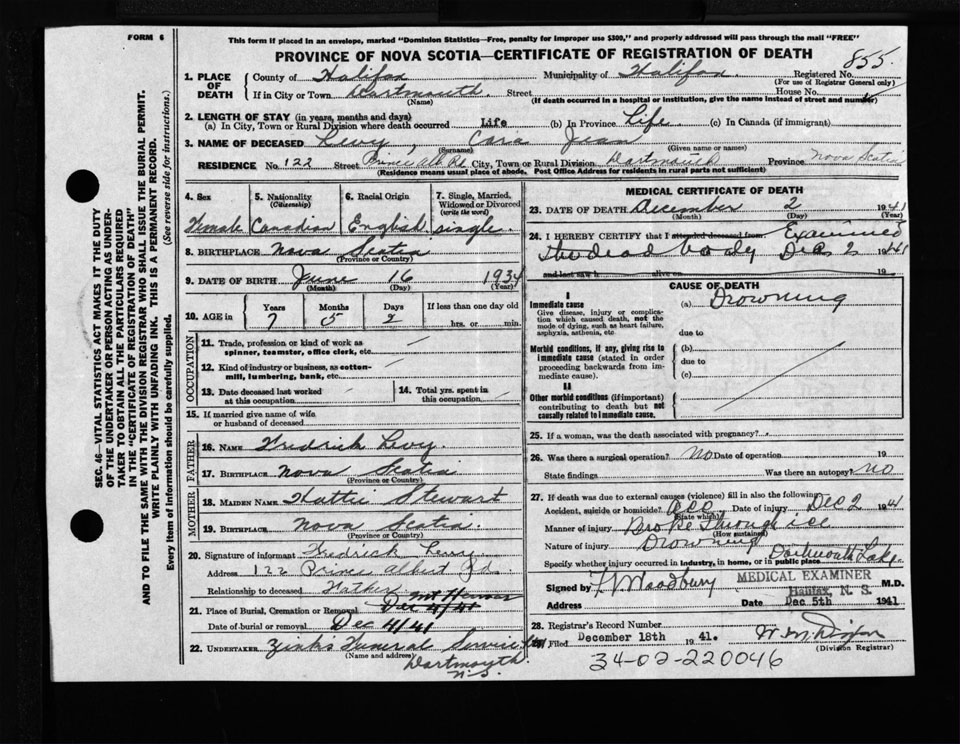 FORM 6
This form if placed in an envelope, marked "Dominion Statistics—Free, penalty for improper use $300," and properly addressed will pass through the mail "FREE"
PROVINCE OF NOVA SCOTIA—CERTIFICATE OF REGISTRATION OF DEATH
855
1. PLACE OF DEATH
County of Halifax Municipality of Halifax Registered No.
(For use of Registrar General only)
If in City or Town Dartmouth Street House No.
(Name) (If death occurred in a hospital or institution, give the name instead of street and number)
2. LENGTH OF STAY (in years, months and days)
(a) In City, Town or Rural Division where death occurred Life (b) In Province Life (c) In Canada (if immigrant)
3. NAME OF DECEASED Levy, Cara Jean
(Surname) (Given name or names)
RESIDENCE No. 122 Street Prince Alb Rd City, Town or Rural Division Dartmouth Province Nova Scotia
(Residence means usual place of abode. Post Office Address for residents in rural parts not sufficient)
4. Sex 5. Nationality (Citizenship) 6. Racial Origin 7. Single, Married, Widowed or Divorced (write the word)
Female Canadian English single
8. BIRTHPLACE Nova Scotia
(Province or Country)
9. DATE OF BIRTH June 16 1934
(Month) (Day) (Year)
10. AGE in Years Months Days If less than one day old
7 5 2 hrs. or min.
OCCUPATION
11. Trade, profession or kind of work as spinner, teamster, office clerk, etc.
12. Kind of industry or business, as cotton-mill, lumbering, bank, etc.
13. Date deceased last worked at this occupation
14. Total yrs. spent in this occupation
15. If married give name of wife or husband of deceased
FATHER
16. NAME Fredrick Levy
17. BIRTHPLACE Nova Scotia
(Province or Country)
MOTHER
18. MAIDEN NAME Hattie Stewart
19. BIRTHPLACE Nova Scotia
(Province or Country)
20. Signature of informant Fredrick Levy
Address 122 Prince Albert Rd.
Relationship to deceased Father
21. Place of Burial, Cremation or Removal Dec 4/41
Date of burial or removal Dec 4/41
22. UNDERTAKER Zink's Funeral Service
(Name and address)
Dartmouth
N.S.
MEDICAL CERTIFICATE OF DEATH
23. DATE OF DEATH December 2 1941
(Month) (Day) (Year)
24. I HEREBY CERTIFY that I attended deceased from Examined
the dead body Dec 2 1941
and last saw h alive on 19
CAUSE OF DEATH
I
Immediate cause
Give disease, injury or complication which caused death, not the mode of dying, such as heart failure, asphyxia, asthenia, etc.
(a) Drowning
due to
Morbid conditions, if any, giving rise to immediate cause (stated in order proceeding backwards from immediate cause).
(b)
due to
(c)
II
Other morbid conditions (if important) contributing to death but not causally related to immediate cause.
25. If a woman, was the death associated with pregnancy?
26. Was there a surgical operation? no Date of operation 19
State findings Was there an autopsy? no
27. If death was due to external causes (violence) fill in also the following:
Accident, suicide or homicide? Acc Date of injury Dec 2 194
(State which)
Manner of injury Broke through ice
(How sustained)
Nature of injury Drowning
Specify whether injury occurred in industry, in home, or in public place Dartmouth Lake
Signed by F. V. Woodbury MEDICAL EXAMINER M.D.
Halifax, N. S.
Address Date Dec 5th 1941
28. Registrar's Record Number
Filed December 18th 1941.
(Division Registrar)
34-02-220046
SEC. 46—VITAL STATISTICS ACT MAKES IT THE DUTY OF THE UNDERTAKER OR PERSON ACTING AS UNDERTAKER TO OBTAIN ALL THE PARTICULARS REQUIRED IN THE "CERTIFICATE OF REGISTRATION OF DEATH"
AND TO FILE THE SAME WITH THE DIVISION REGISTRAR WHO SHALL ISSUE THE BURIAL PERMIT.
WRITE PLAINLY WITH UNFADING INK. THIS IS A PERMANENT RECORD.
Every item of information should be carefully supplied. (See reverse side for instructions.)